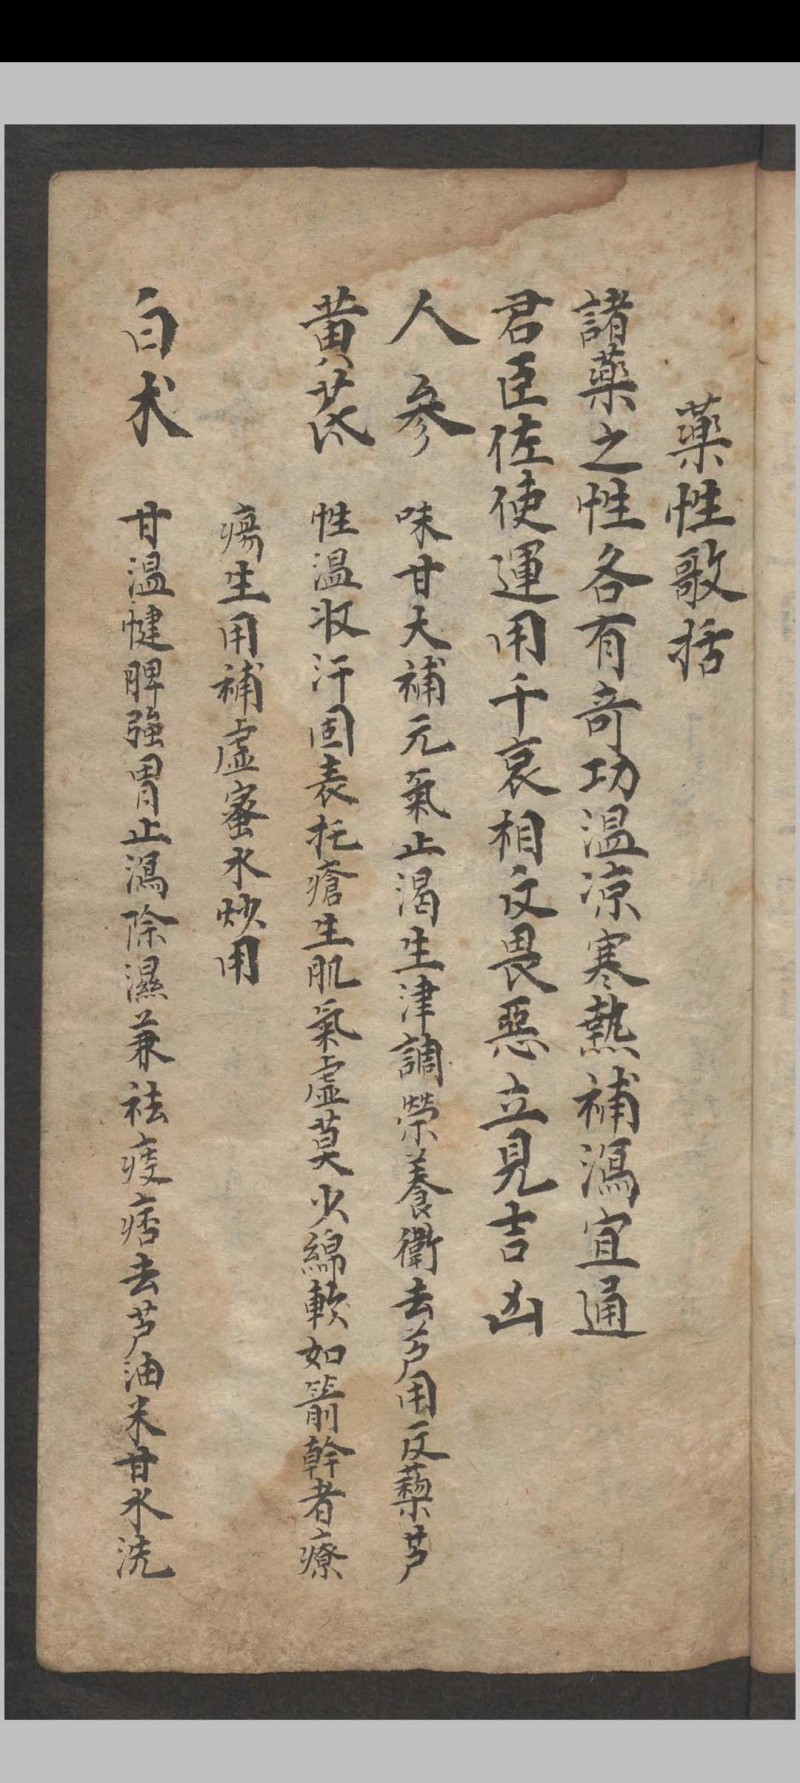 藥性歌括
諸藥之性各有奇功温凉寒熱補瀉宜通
君臣佐使運用千衷相反畏惡立見吉凶
人參 味甘大補元氣止渴生津調榮養衛去芦用反藜芦
黄芪 性温收汗固表托瘡生肌氣虚莫少綿軟如箭幹者療
瘍生用補虚蜜水炒用
白术 甘温健脾強胃止瀉除濕兼袪痰痞去芦油米甘水洗